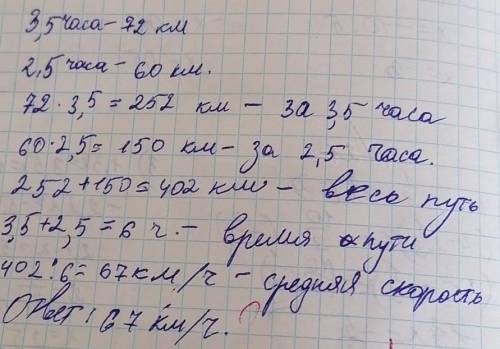 3,5 часа - 72 км
2,5 часа - 60 км.
72 · 3,5 = 252 км - за 3,5 часа
60 · 2,5 = 150 км - за 2,5 часа.
252 + 150 = 402 км - весь путь
3,5 + 2,5 = 6 ч. - время пути
402 : 6 = 67 км/ч - средняя скорость
Ответ: 67 км/ч.